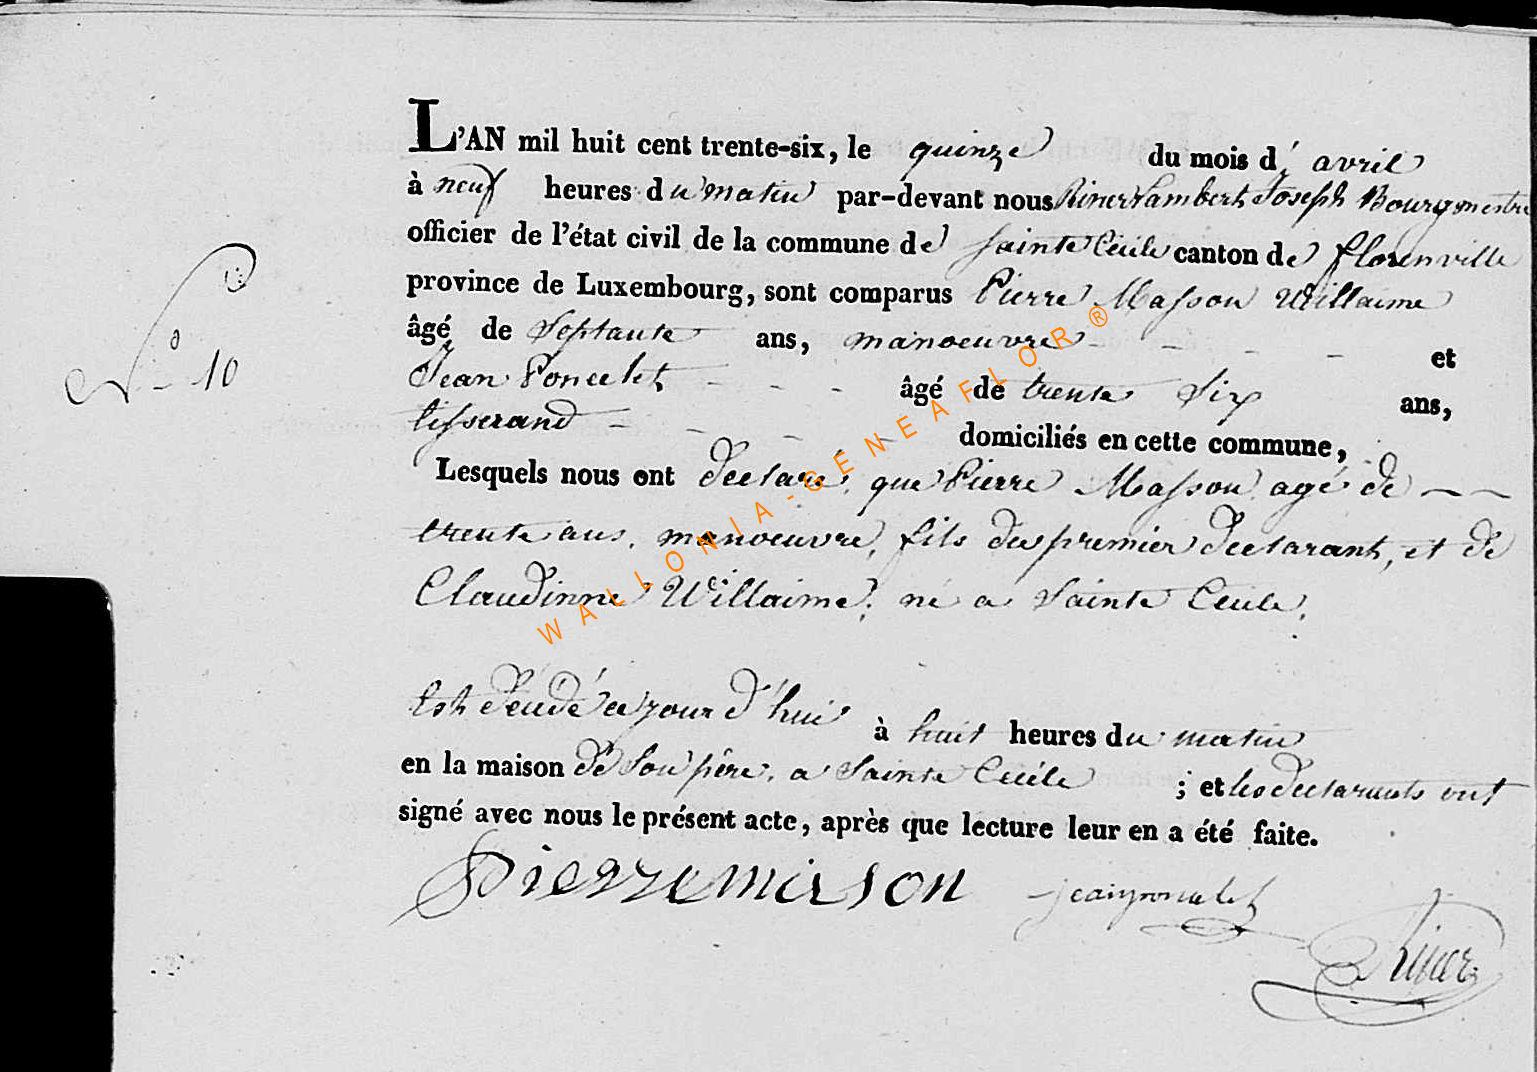 L'AN mil huit cent trente-six, le quinze du mois d' avril
à neuf heures du matin par-devant nous Riner Lambert Joseph Bourgmestre
officier de l'état civil de la commune de Sainte Cécile canton de florenville
province de Luxembourg, sont comparus Pierre Masson Willaime
âgé de Septante ans, manoeuvre - - - - et
N° 10
Jean Poncelet - - - âgé de trente Six ans,
tisserand - - - - domiciliés en cette commune,
Lesquels nous ont déclaré, que Pierre Masson agé de - -
trente ans, manoeuvre, fils du premier déclarant, et de
Claudinne Willaime, né a Sainte Cecile,
Est décédé ce jour d'hui à huit heures du matin
en la maison de Son père, a Sainte Cecile ; et les déclarants ont
signé avec nous le présent acte, après que lecture leur en a été faite.
Pierre masson jean poncelet
Riner
WALLONIA-GENEAFLOR®